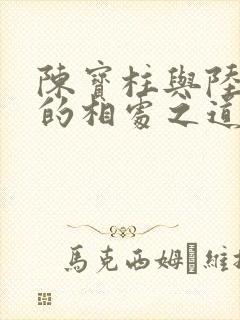 陳寶柱與陸
的相處之道
馬克西姆·維